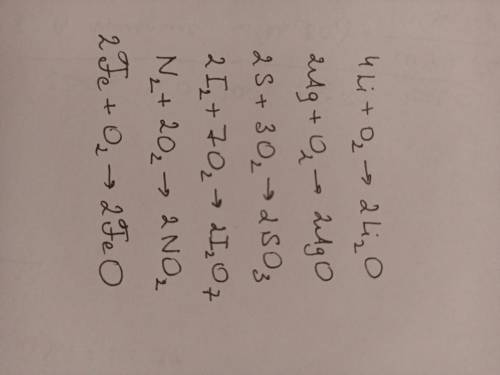 4Li + O₂ → 2Li₂O
2Ag + O₂ → 2AgO
2S + 3O₂ → 2SO₃
2I₂ + 7O₂ → 2I₂O₇
N₂ + 2O₂ → 2NO₂
2Fe + O₂ → 2FeO